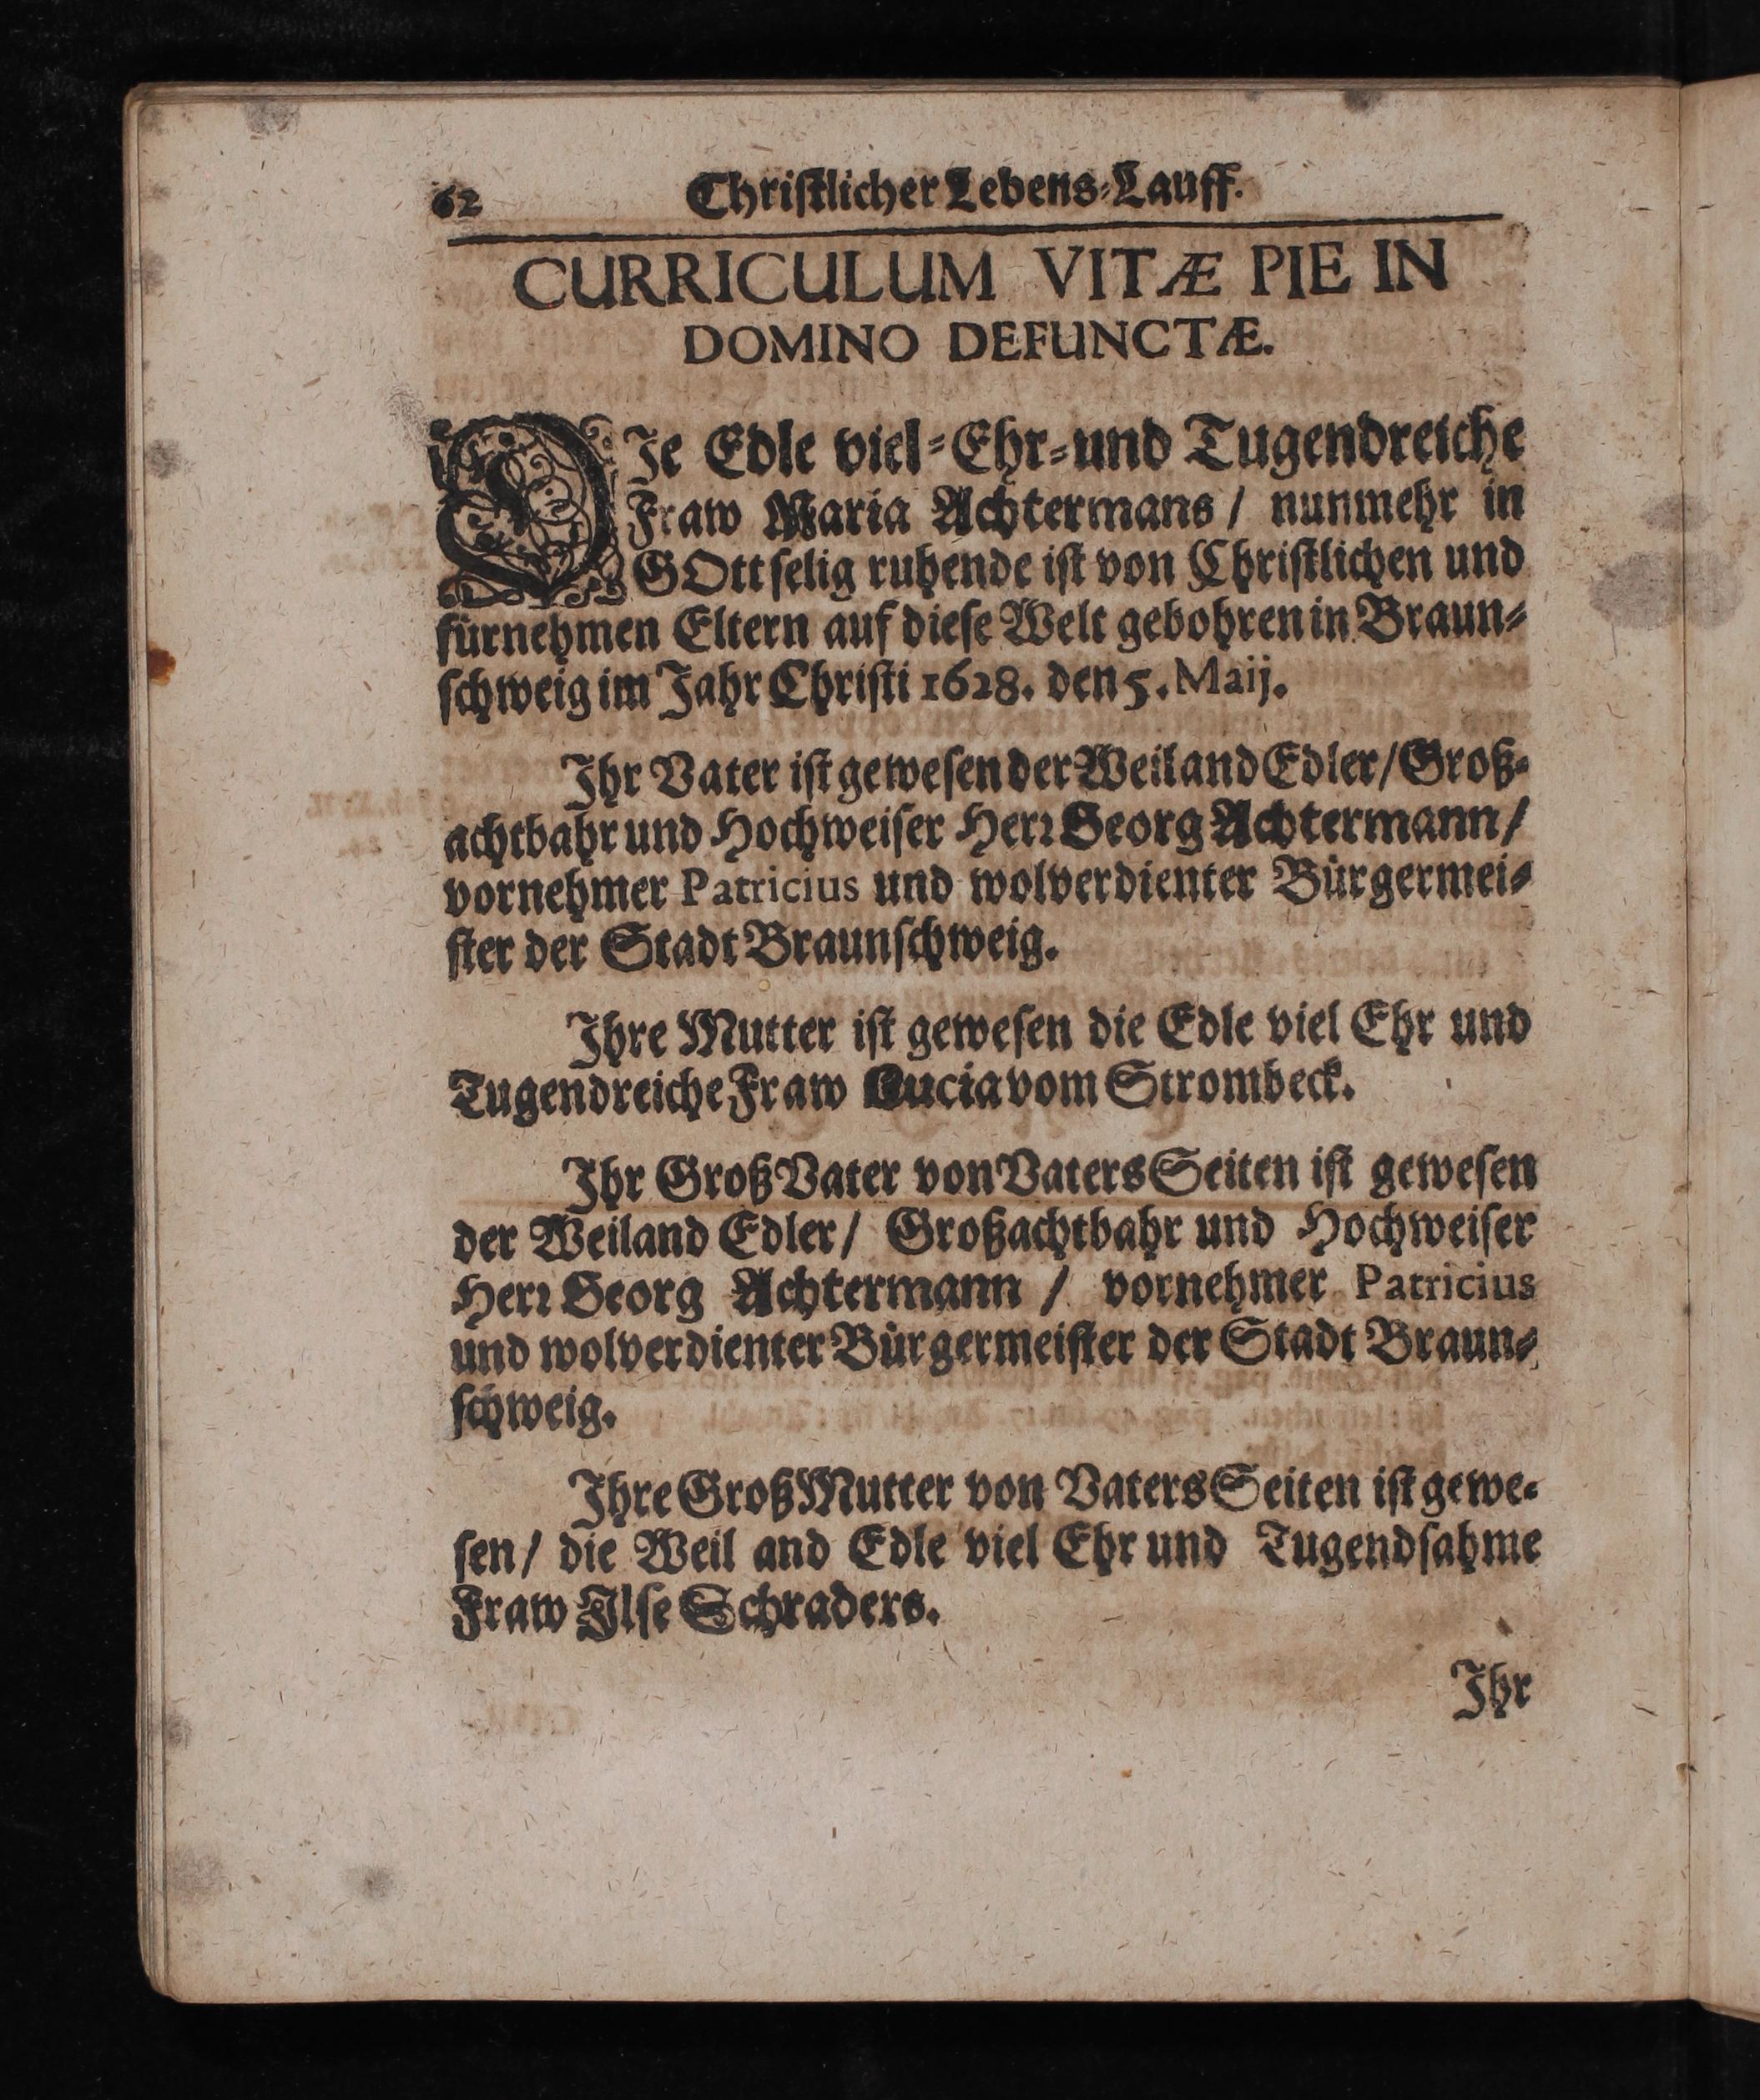 62 Christlicher Lebens-Lauff.
CURRICULUM VITÆ PIE IN
DOMINO DEFUNCTÆ.
DIe Edle viel-Ehr-und Tugendreiche
Fraw Maria Achtermans / nunmehr in
GOtt selig ruhende ist von Christlichen und
fürnehmen Eltern auf diese Welt gebohren in Braun-
schweig im Jahr Christi 1628. den 5. Maij.
Ihr Vater ist gewesen der Weiland Edler / Groß-
achtbahr und Hochweiser Herr Georg Achtermann /
vornehmer Patricius und wolverdienter Bürgermei-
ster der Stadt Braunschweig.
Ihre Mutter ist gewesen die Edle viel Ehr und
Tugendreiche Fraw Lucia vom Strombeck.
Ihr Groß Vater von Vaters Seiten ist gewesen
der Weiland Edler / Großachtbahr und Hochweiser
Herr Georg Achtermann / vornehmer Patricius
und wolverdienter Bürgermeister der Stadt Braun-
schweig.
Ihre Groß Mutter von Vaters Seiten ist gewe-
sen / die Weil and Edle viel Ehr und Tugendsahme
Fraw Ilse Schraders.
Ihr